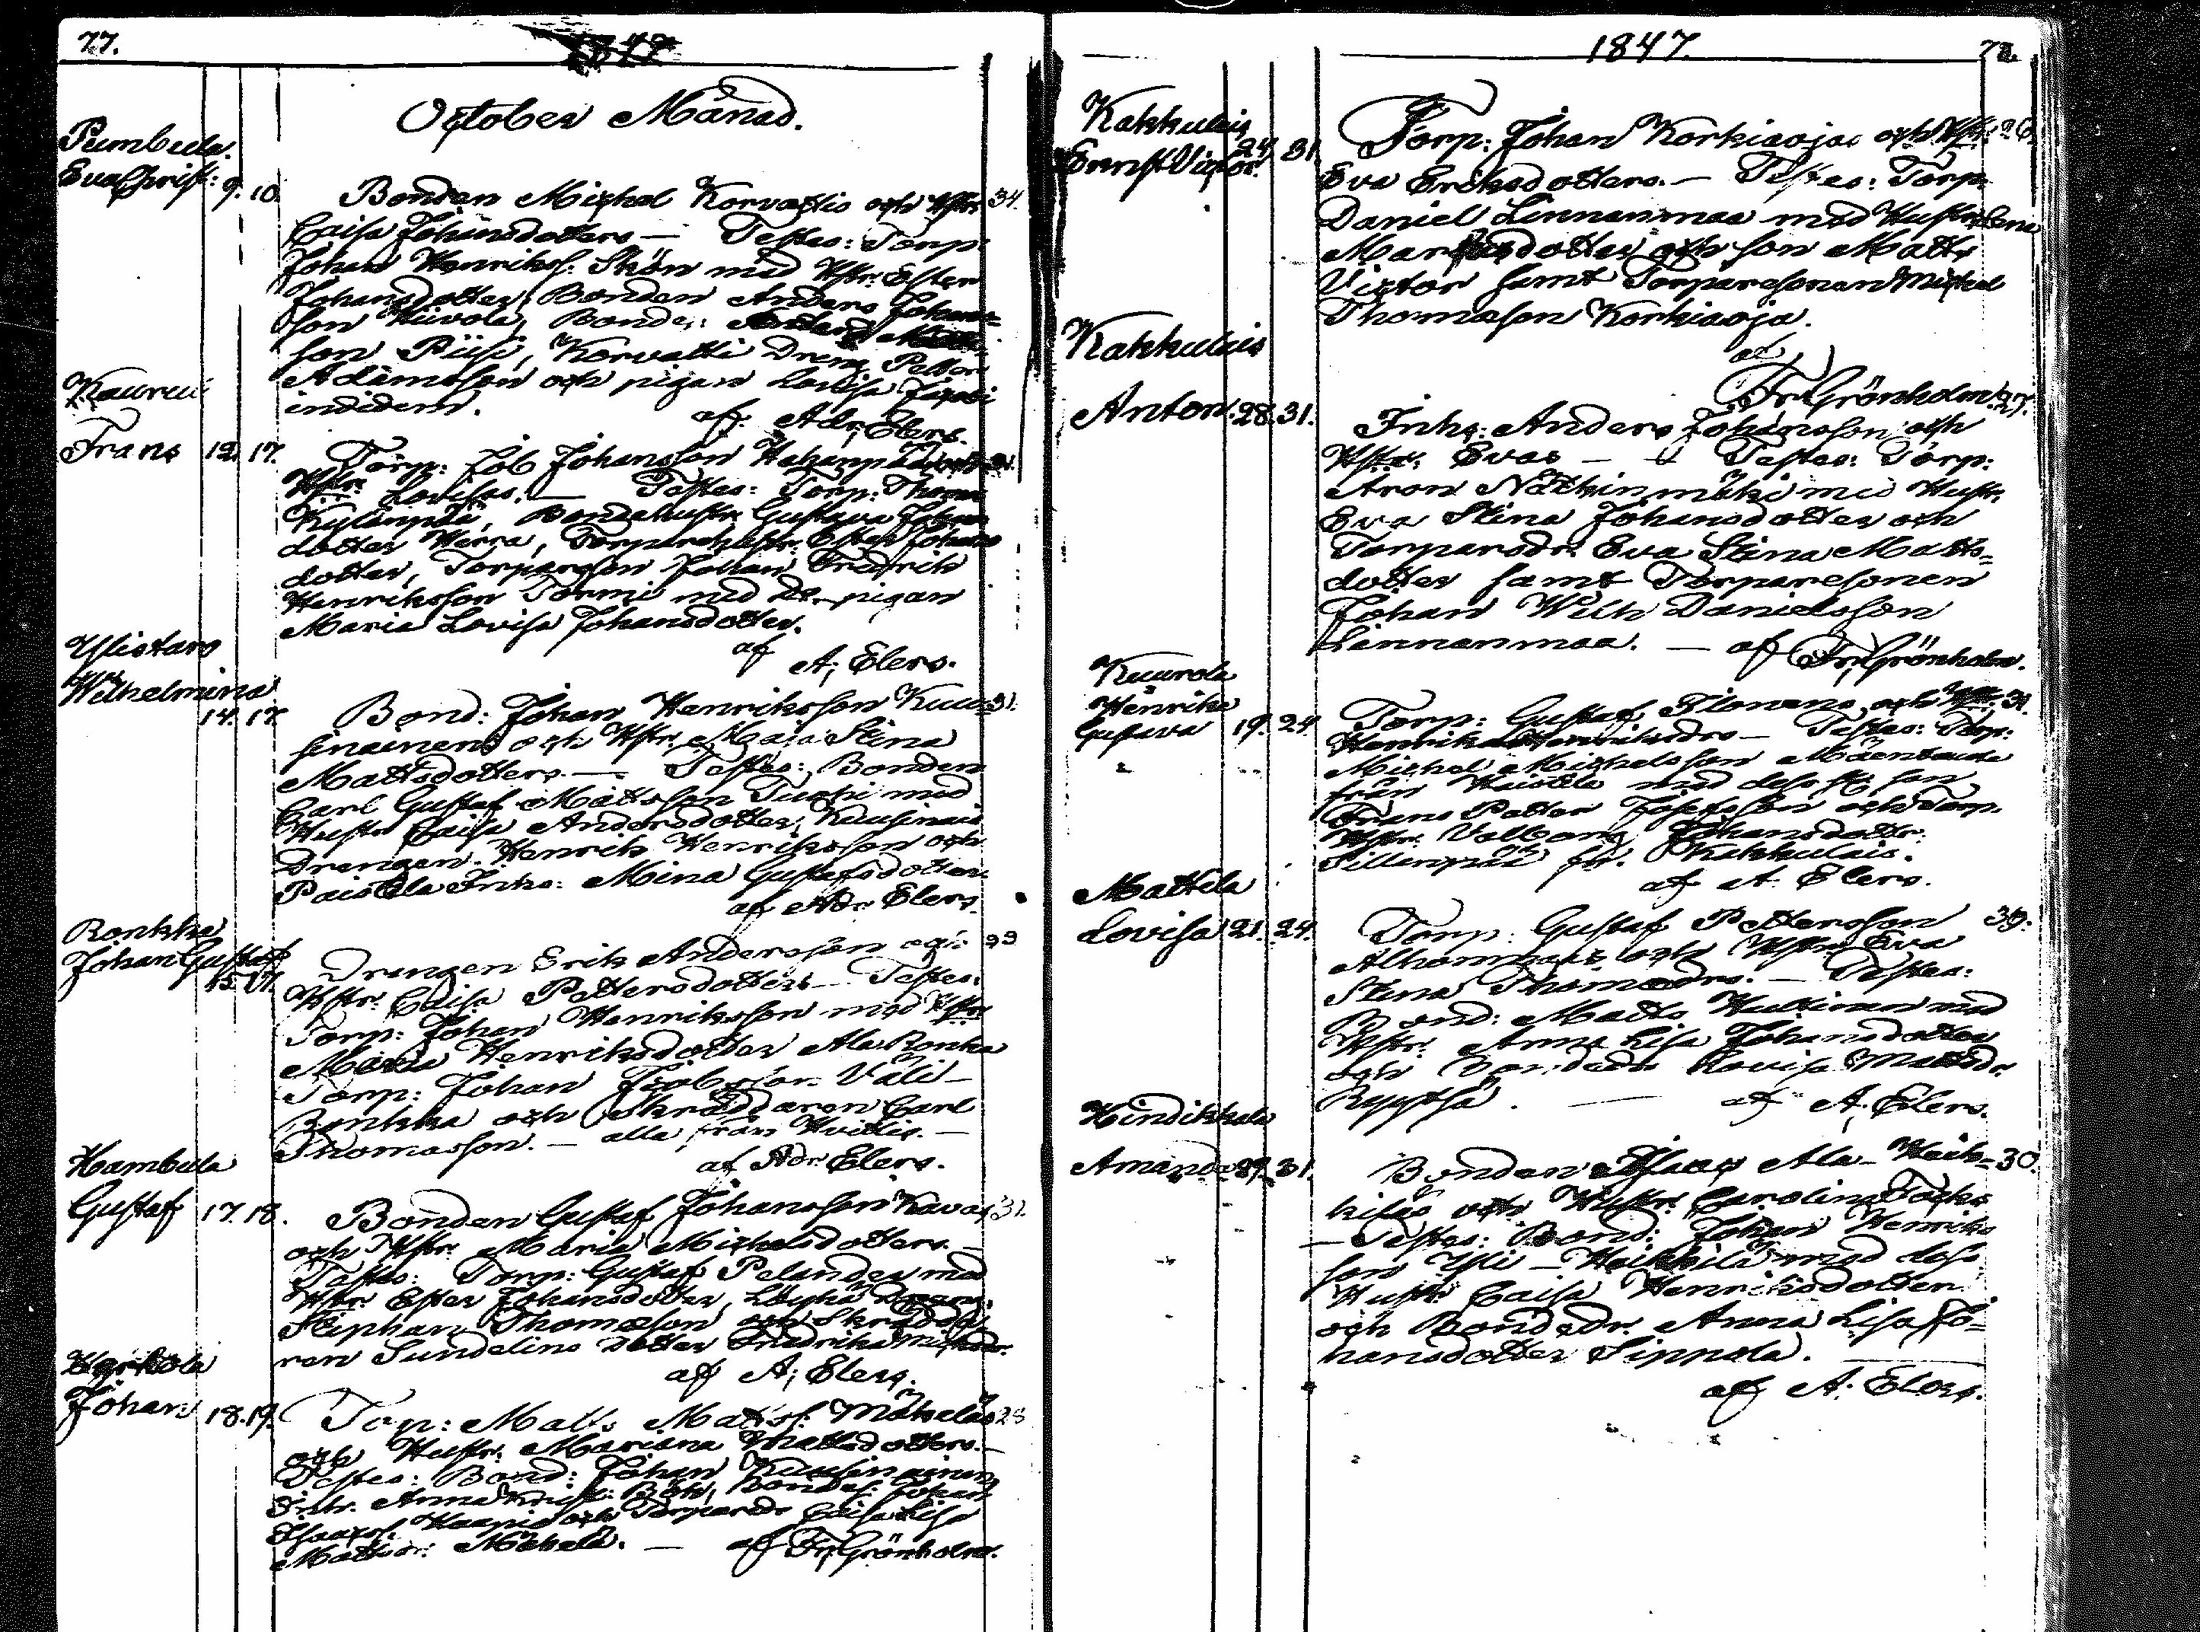 77.
1847
October Månad.
Pumbula.
Eva Christ: 9. 10.
Bonden Michel Korvattis och Hstr 34.
Caisa Johansdotters — Testes: Torp:
Johan Henrikss. Skön med Hstr: Ester
Johansdotter, Bonden Anders Johans=
son Hiivola, Bonde:
son Piisi, Korvatti Dreng Petter
Adamsson och pigan Lovisa Jacobi
indidem.
af Adr: Elers.
Frans 12. 17.
Torp: Job Johansson
Hstr: Lovisas. — Testes: Torp: Thomas
Kylänpää, Bondehustr: Gustava Johans
dotter Herra, Torparehustr: Ester Johans
dotter, Torparson Johan Fredrik
Henriksson Tormi med pigan
Maria Lovisa Johansdotter.
af
A; Elers.
Ylistaro
Wilhelmina
14. 17.
Bond: Johan Henriksson Kuu= 31.
sinainens och Hstr: Maja Stina
Mattsdotters. — Testes: Bonden
Carl Gustaf Mattsson Tuori med
Hustr: Caisa Andersdotter, Kuusinais
Drengen Henrik Henriksson och
Paistila Inhs: Mina Gustafsdotter.
af Adr Elers.
Ronkka
Johan Gustaf
15. 17.
Drengen Erik Andersson och 33
Hstr: Caisa Pettersdotters — Testes:
Torp: Johan Henriksson med Hstr
Maria Henriksdotter Ala Ronka
Torp: Johan Jacobsson Väli-
Ronkka och Skräddaren Carl
Thomasson. — alla från Hvittis. —
af Adr: Elers.
Hambula
Gustaf 17. 18.
Bonden Gustaf Johansson
och Hstr: Maria Michelsdotters. —
Testes: Torp: Gustaf Pelander med
Hstr: Ester Johansdotter,
Stephan Thomasson och Skrädda
ren Sundelins dotter Fredrika
af A; Elers.
Johan 18. 19.
Torp: Matts Matss: Mäkeläs 28
och Hustr: Mariana Mattsdotters. —
Testes: Bond: Johan Kuusinainen
Anna Krist: Böök, Bondes: Johan
Isaacss. Haapio och Torparedr: Caisa Lisa
Mattsdr: Mäkelä. — af Fr: Grönholm.
1847.
Kakkulais
Ernst Victor. 24. 31.
Torp: Johan Korkiaojas och Hstr: 26.
Eva Eriksdotters. — Testes: Torp:
Daniel Linnanmaa med Hustr: Lena
dotter och son Matts
Victor samt Torparesonen Michel
Thomasson Korkiaoja.
af
Fr: Grönholm.
Kakkulais
Anton. 28. 31.
Inhs: Anders Johansson och
Hstr: Evas — Testes: Torp:
Aron Nätkinmäki med Hustr:
Eva Stina Johansdotter och
Torparedr: Eva Stina Matts=
dotter samt Torparesonen
Johan Wilh Danielsson
Linnanmaa. — af Fr: Grönholm.
Kuurola
Henrika
Gustava 19. 24.
Torp: Gustaf Florens och Hstr: 31.
Henrika Henriksdrs — Testes: Torp:
Michel Michelsson Mäentausta
från med dess son
Frans Petter Josefsson och Torp.
Hstr: Valborg Johansdotter
Sillanpää fr. Kakkulais.
af A: Elers.
Mattila
Lovisa 21. 24.
Torp: Gustaf Pettersson 39.
och Hstr: Eva
Stina Thomasdrs. — Testes:
Bond: Matts Huttinen med
Hstr: Anna Lisa Johansdotter
och Bondedr: Lovisa Mattsdr
.
af A. Elers.
Hindikkala
Amanda 29. 31.
Bonden Isaac Ala-Heik= 30.
kiläs och Hustr: Carolina
— Testes: Bond: Johan Henriks
son Yli-Heikkilä med dess
Hustr: Caisa Henriksdotter
och Bondedr: Anna Lisa Jo=
hansdotter Sippola.
af A: Elers.